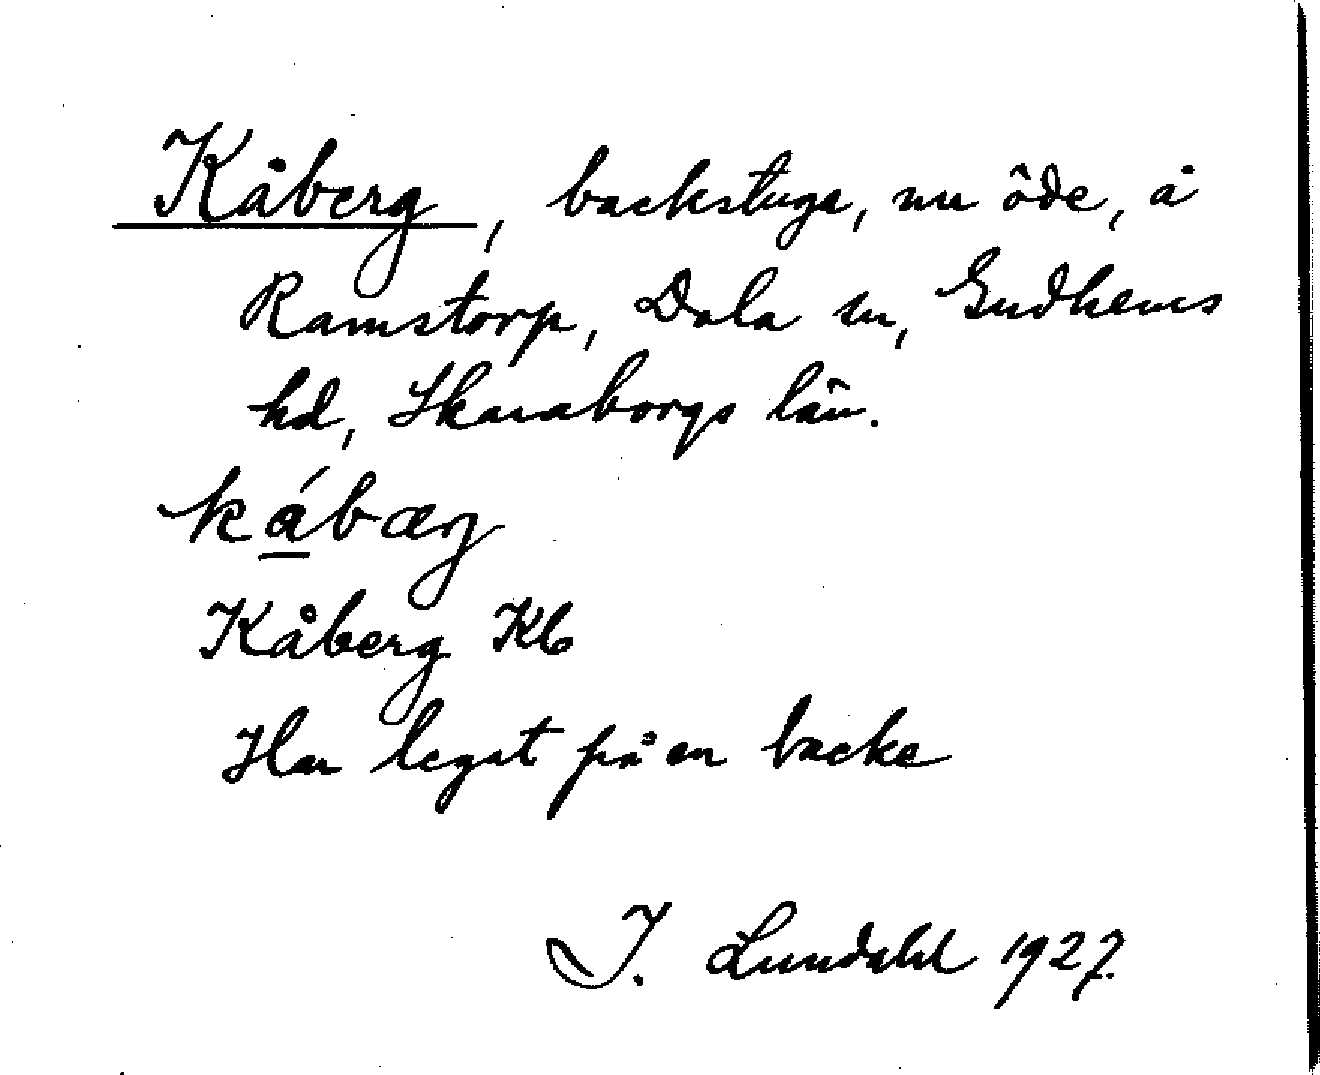 Kåberg, backstuga, nu öde, å
Ramstorp, Dala sn, Gudhems
hd, Skaraborgs län.
ká̱bærj
Kåberg Kb
Har legat på en backe
I. Lundahl 1927.